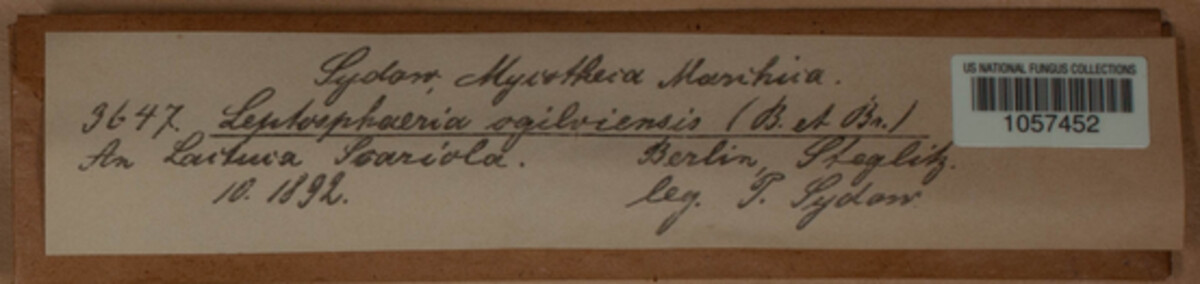 Sydow, Mycotheca Marchica.
3647. Leptosphaeria ogilviensis (B. et Br.)
An Lactuca Scariola. Berlin, Steglitz.
10. 1892. leg. P. Sydow
US NATIONAL FUNGUS COLLECTIONS
1057452